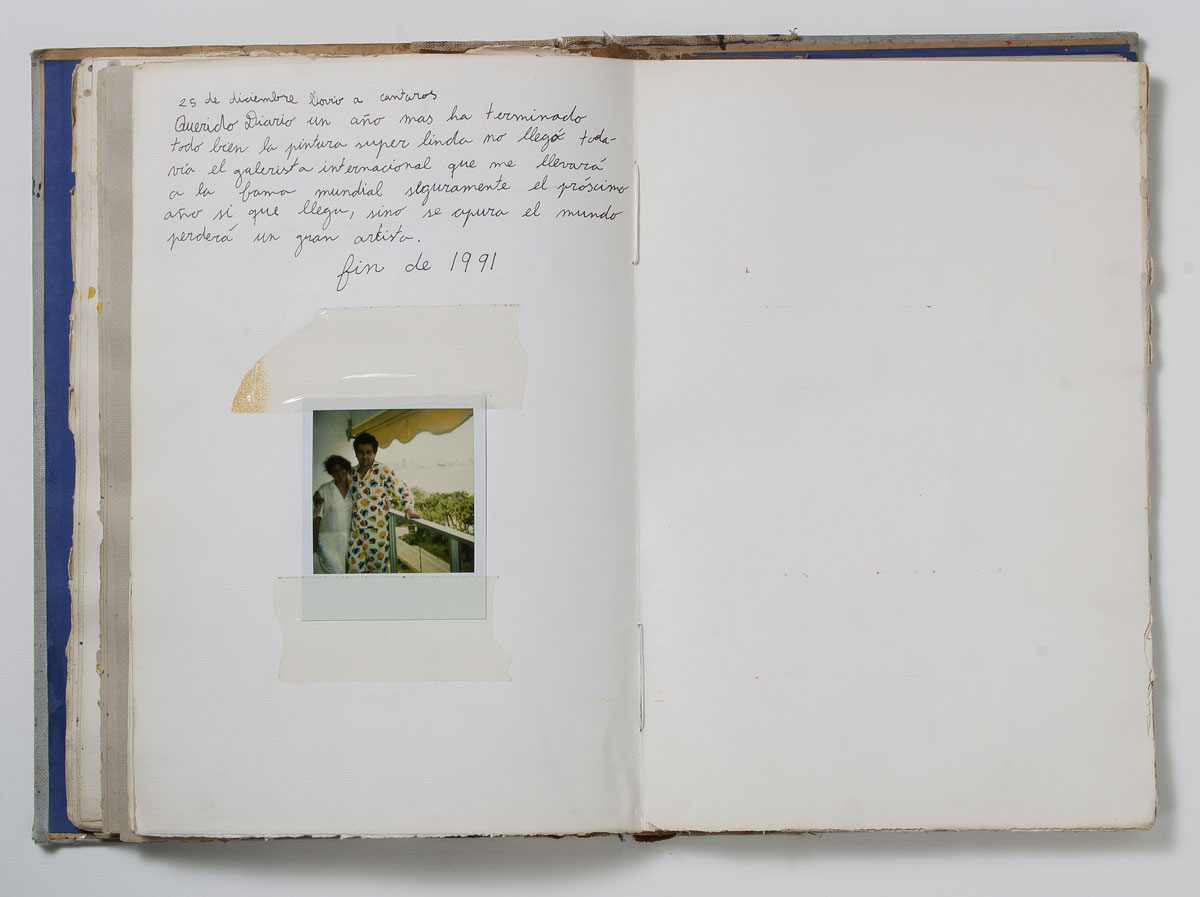 25 de diciembre llovio a cantaros
Querido Diario un año mas ha terminado
todo bien la pintura super linda no llegó toda-
vía el galerista internacional que me llevará
a la fama mundial seguramente el próscimo
año si que llega, sino se apura el mundo
perderá un gran artista.
fin de 1991